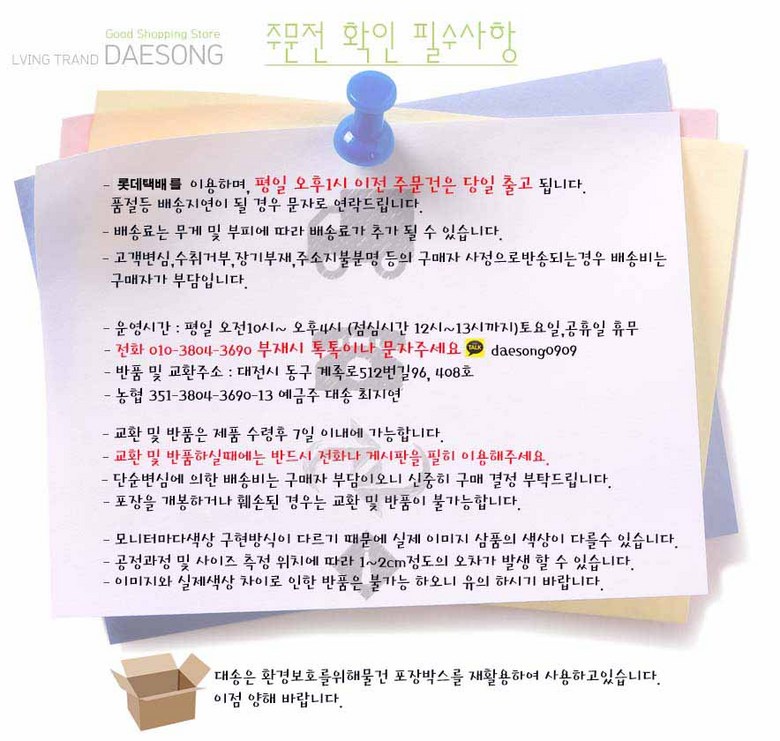 Good Shopping Store
LVING TRAND DAESONG
주문전 확인 필수사항
- 롯데택배를 이용하며, 평일 오후1시 이전 주문건은 당일 출고 됩니다.
품절등 배송지연이 될 경우 문자로 연락드립니다.
- 배송료는 무게 및 부피에 따라 배송료가 추가 될 수 있습니다.
- 고객변심,수취거부,장기부재,주소지불분명 등의 구매자 사정으로반송되는경우 배송비는
구매자가 부담입니다.
- 운영시간 : 평일 오전10시~ 오후4시 (점심시간 12시~13시까지)토요일,공휴일 휴무
- 전화 010-3804-3690 부재시 톡톡이나 문자주세요 TALK daesong0909
- 반품 및 교환주소 : 대전시 동구 계족로512번길96, 408호
- 농협 351-3804-3690-13 예금주 대송 최지연
- 교환 및 반품은 제품 수령후 7일 이내에 가능합니다.
- 교환 및 반품하실때에는 반드시 전화나 게시판을 필히 이용해주세요.
- 단순변심에 의한 배송비는 구매자 부담이오니 신중히 구매 결정 부탁드립니다.
- 포장을 개봉하거나 훼손된 경우는 교환 및 반품이 불가능합니다.
- 모니터마다색상 구현방식이 다르기 때문에 실제 이미지 삼품의 색상이 다를수 있습니다.
- 공정과정 및 사이즈 측정 위치에 따라 1~2cm정도의 오차가 발생 할 수 있습니다.
- 이미지와 실제색상 차이로 인한 반품은 불가능 하오니 유의 하시기 바랍니다.
대송은 환경보호를위해물건 포장박스를 재활용하여 사용하고있습니다.
이점 양해 바랍니다.